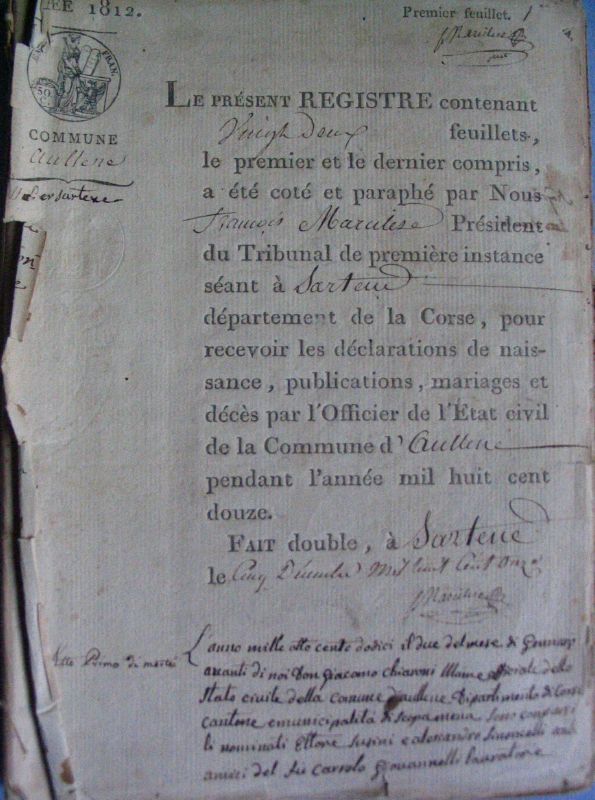 ÉE 1812.
Premier feuillet. 1
EMP. FRAN.
50
COMMUNE
aullene
sartene
LE PRÉSENT REGISTRE contenant
Vingt Deux feuillets,
le premier et le dernier compris,
a été coté et paraphé par Nous
François Président
du Tribunal de première instance
séant à Sartene
département de la Corse, pour
recevoir les déclarations de nais-
sance, publications, mariages et
décès par l'Officier de l'État civil
de la Commune d' aullene
pendant l'année mil huit cent
douze.
FAIT double, à Sartene
le Cinq Décembre Mil huit Cent Onze
L'anno mille otto cento dodici il due del mese di Gennaro
avanti di noi Don Giacomo Chiaroni Maire officiale dello
Stato civile della comune d'aullene Dipartimento di Corsica
cantone e municipalità di scopamena sono comparsi
li nominati Ettore Susini e alessandro
amici del fù Carlo Giovannelli lavoratore